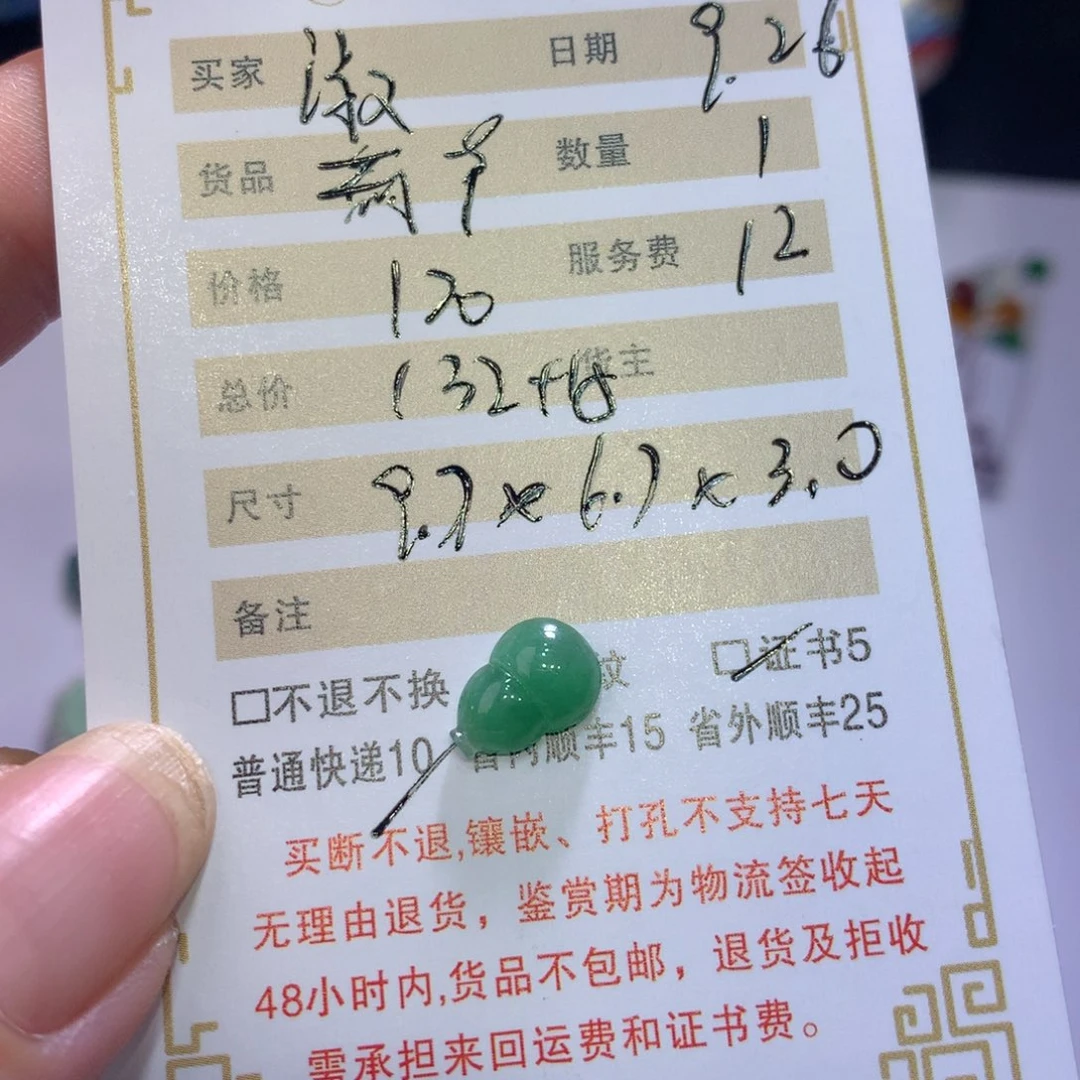 买家 淑 日期 9.26
货品 葫芦 数量 1
价格 120 服务费 12
总价 132+ 货主
尺寸 9.7×6.7×3.0
备注
□不退不换 纹 □证书5
普通快递10 省内顺丰15 省外顺丰25
买断不退,镶嵌、打孔不支持七天
无理由退货，鉴赏期为物流签收起
48小时内,货品不包邮，退货及拒收
需承担来回运费和证书费。